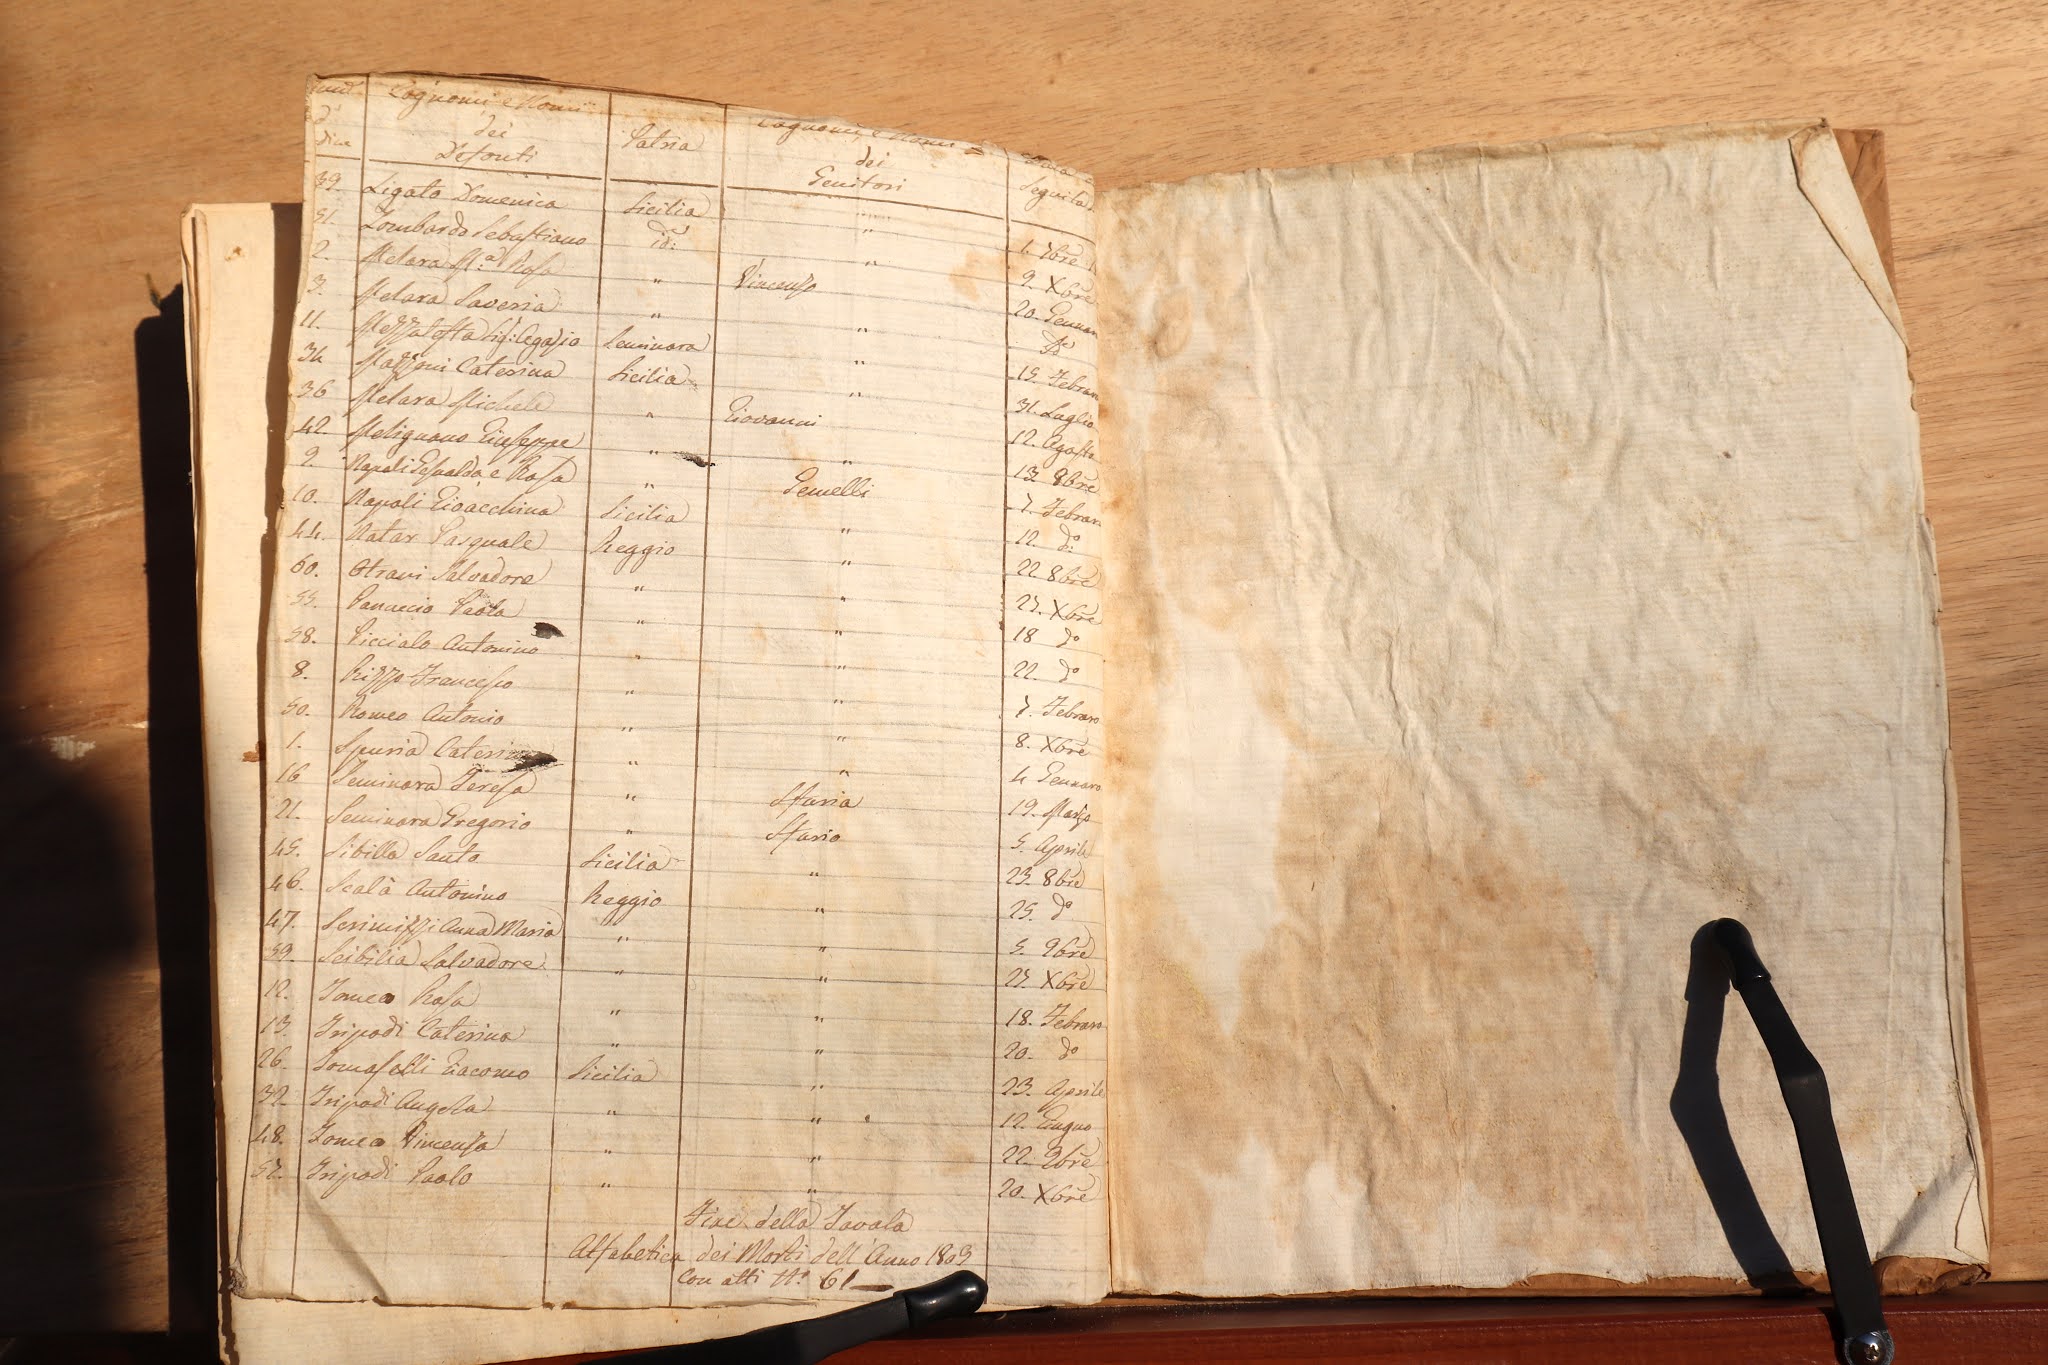 Cognomi e Nomi dei Defonti Patria Cognomi e Nomi dei Genitori Seguita
39. Ligato Domenica Sicilia " 1. 7bre
51. Lombardo Sebastiano id: " 9. Xbre
2. Melara M.a Rosa " Vincenzo 20. Gennaro
3. Melara Saveria " " do
11. Mezzatesta Sig: Agazio Seminara " 15. Febraro
34 Mazzoni Caterina Sicilia " 31. Luglio
36 Melara Michele " Giovanni 12. Agosto
42. Melignano Giuseppe " " 13 8bre
9. Napoli Gesualda e Rosa " Gemelli 7. Febraro
10. Napoli Gioacchina Sicilia " 12. do:
44. Natar Pasquale Reggio " 22 8bre
60. Otravi Salvadore " " 27. Xbre
55. Panuccio Paola " " 18 do
58. Picciolo Antonino " " 22. do
8. Rizzo Francesco " " 7. Febraro
50. Romeo Antonio " " 8. Xbre
1. Spuria Caterina " " 4 Gennaro
16 Seminara Teresa " Spuria 19. Marzo
21. Seminara Gregorio " Spurio 5. Aprile
45. Sibilla Santo Sicilia " 23. 8bre
46. Scalà Antonino Reggio " 25. do
47. Scrimizzi Anna Maria " " 5. 9bre
59. Scibilia Salvadore " " 27. Xbre
12. Tomeo Rosa " " 18. Febraro
13. Tripodi Caterina " " 20. do
26. Tomaselli Giacomo Sicilia " 23. Aprile
32. Tripodi Angela " " 12. Giugno
48. Tomeo Vincenza " " 22. 9bre
57. Tripodi Paolo " " 20. Xbre
Fine della Tavola
Alfabetica dei Morti dell'Anno 1803
Con atti N.o 61